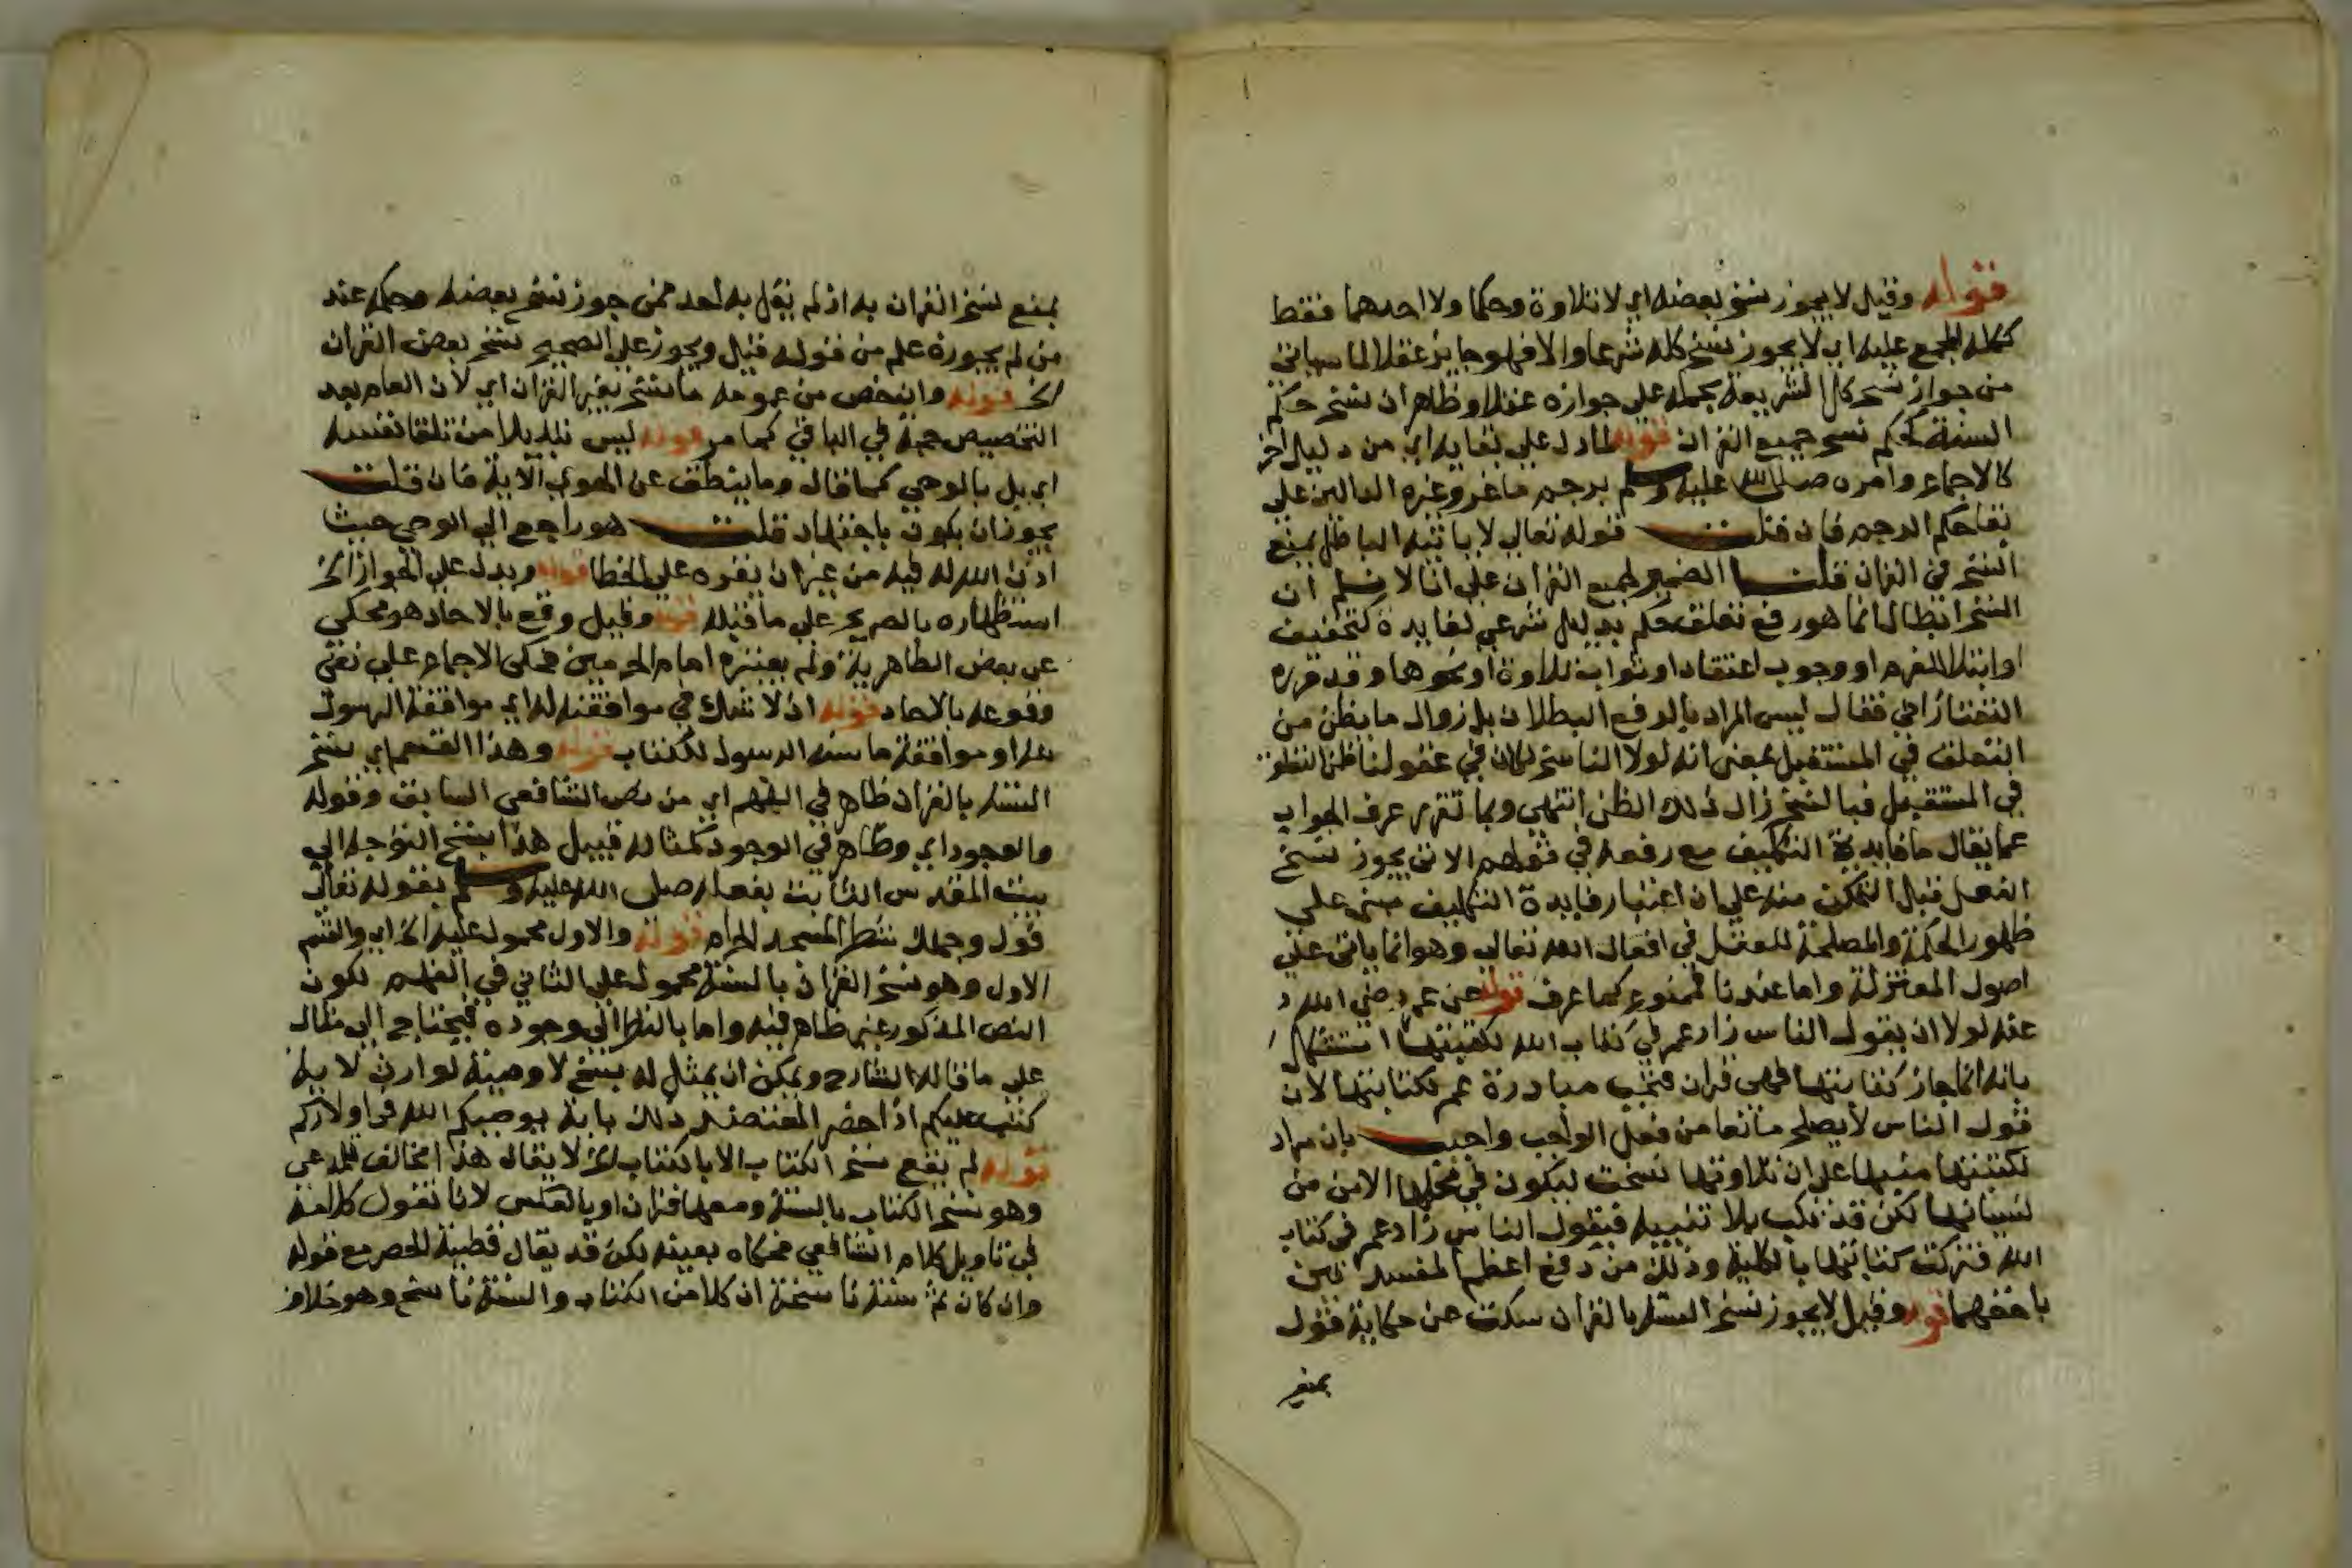 قوله وقيل لا يجوز نسخ بعضه اي لا تلاوة وحكما ولا احدهما فقط
ككله المجمع عليه اي لا يجوز نسخ كله شرعا والا فهو جايز عقلا لما سياتي
من جواز نسخ كل الشريعة بجملة على جوازه عقلا وظاهر ان نسخ حكم
السنة كحكم نسخ جميع القران قوله لما دل على بقايه اي من دليل اخر
كالاجماع وامره صلى الله عليه وسلم برجم ماعز وغيره الدالين على
بقا حكم الرجم فان قلت قوله تعالى لا ياتيه الباطل يمنع
النسخ في القران قلت الضمير لجميع القران على انا لا نسلم ان
النسخ ابطال انما هو رفع تعلق حكم بدليل شرعي لفايدة كتخفيف
او ابتلا لفهم او وجوب اعتقاد او ثواب تلاوة او نحوها وقد قرره
التفتازاني فقال ليس المراد بالرفع البطلان بل زوال ما يظن من
التعلق في المستقبل بمعنى انه لولا الناسخ لكان في عقولنا ظن التعلق
في المستقبل فبالنسخ زال ذلك الظن انتهى وبما تقرر عرف الجواب
عما يقال ما فايدة التكليف مع رفعه في قولهم الاتي يجوز نسخ
الفعل قبل التمكن منه على ان اعتبار فايدة التكليف مبني على
ظهور الحكمة والمصلحة للعقل في افعال الله تعالى وهو انما ياتي على
اصول المعتزلة واما عندنا فممنوع كما عرف قوله عن عمر رضي الله
عنه لولا ان يقول الناس زاد عمر في كتاب الله لكتبتها استشكل
بانه انما جاز كتابتها فهي قران فتجب مبادرة عمر لكتابتها لان
قول الناس لا يصلح مانعا من فعل الواجب واجيب بان مراد
لكتبتها منبها على ان تلاوتها نسخت ليكون في محلها الامن من
نسيانها لكن قد تكتب بلا تنبيه فيقول الناس زاد عمر في كتاب
الله فتركت كتابتها بالكلية وذلك من دفع اعظم المفسدتين
باخفهما قوله وقيل لا يجوز نسخ السنة بالقران سكت عن حكاية قول
بمنع
بمنع نسخ القران به اذ لم يقل به احد ممن جوز نسخ بعضه وحكمه عند
من لم يجوزه علم من قوله قيل ويجوز على الصحيح نسخ بعض القران
الخ قوله وان خص من عمومه ما نسخ بغير القران اي لان العام بعد
التخصيص حجة في الباقي كما مر قوله ليس تبديلا من تلقا نفسه
اي بل بالوحي كما قال وما ينطق عن الهوى الاية فان قلت
يجوز ان يكون باجتهاد قلت هو راجع الى الوحي حيث
اذن الله له فيه من غير ان يقره على الخطا قوله ويدل على الجواز الخ
استظهاره بالصريح على ما قبله قوله وقيل وقع بالاحاد هو محكي
عن بعض الظاهرية ولم يعتبره امام الحرمين فحكى الاجماع على نفي
وقوعه بالاحاد قوله اذ لا شك في موافقته له اي موافقة الرسول
له او موافقة ما سنه الرسول للكتاب قوله وهذا القسم اي نسخ
السنة بالقران ظاهر في الفهم اي من نص الشافعي السابق وقوله
والوجود اي وظاهر في الوجود كمثاله قبيل هذا بنسخ التوجه الى
بيت المقدس الثابت بفعله صلى الله عليه وسلم بقوله تعالى
فول وجهك شطر المسجد الحرام قوله والاول محمول عليه الخ اي والقسم
الاول وهو نسخ القران بالسنة محمول على الثاني في الفهم لكون
النص المذكور غير ظاهر فيه واما بالنظر الى وجوده فيحتاج الى مثال
على ما قاله الشارح ويمكن ان يمثل له بنسخ لا وصية لوارث لاية
كتب عليكم اذا حضر المقتضي ذلك باية يوصيكم الله في اولادكم
قوله لم يقع نسخ الكتاب الا بالكتاب الخ لا يقال هذا مخالف للمدعى
وهو نسخ الكتاب بالسنة ومعها قران او بالعكس لانا نقول كلامنا
في تاويل كلام الشافعي فحكاه بعينه لكن قد يقال قضية الحصر مع قوله
وان كان ثم سنة ناسخة ان كلا من الكتاب والسنة ناسخ وهو خلاف